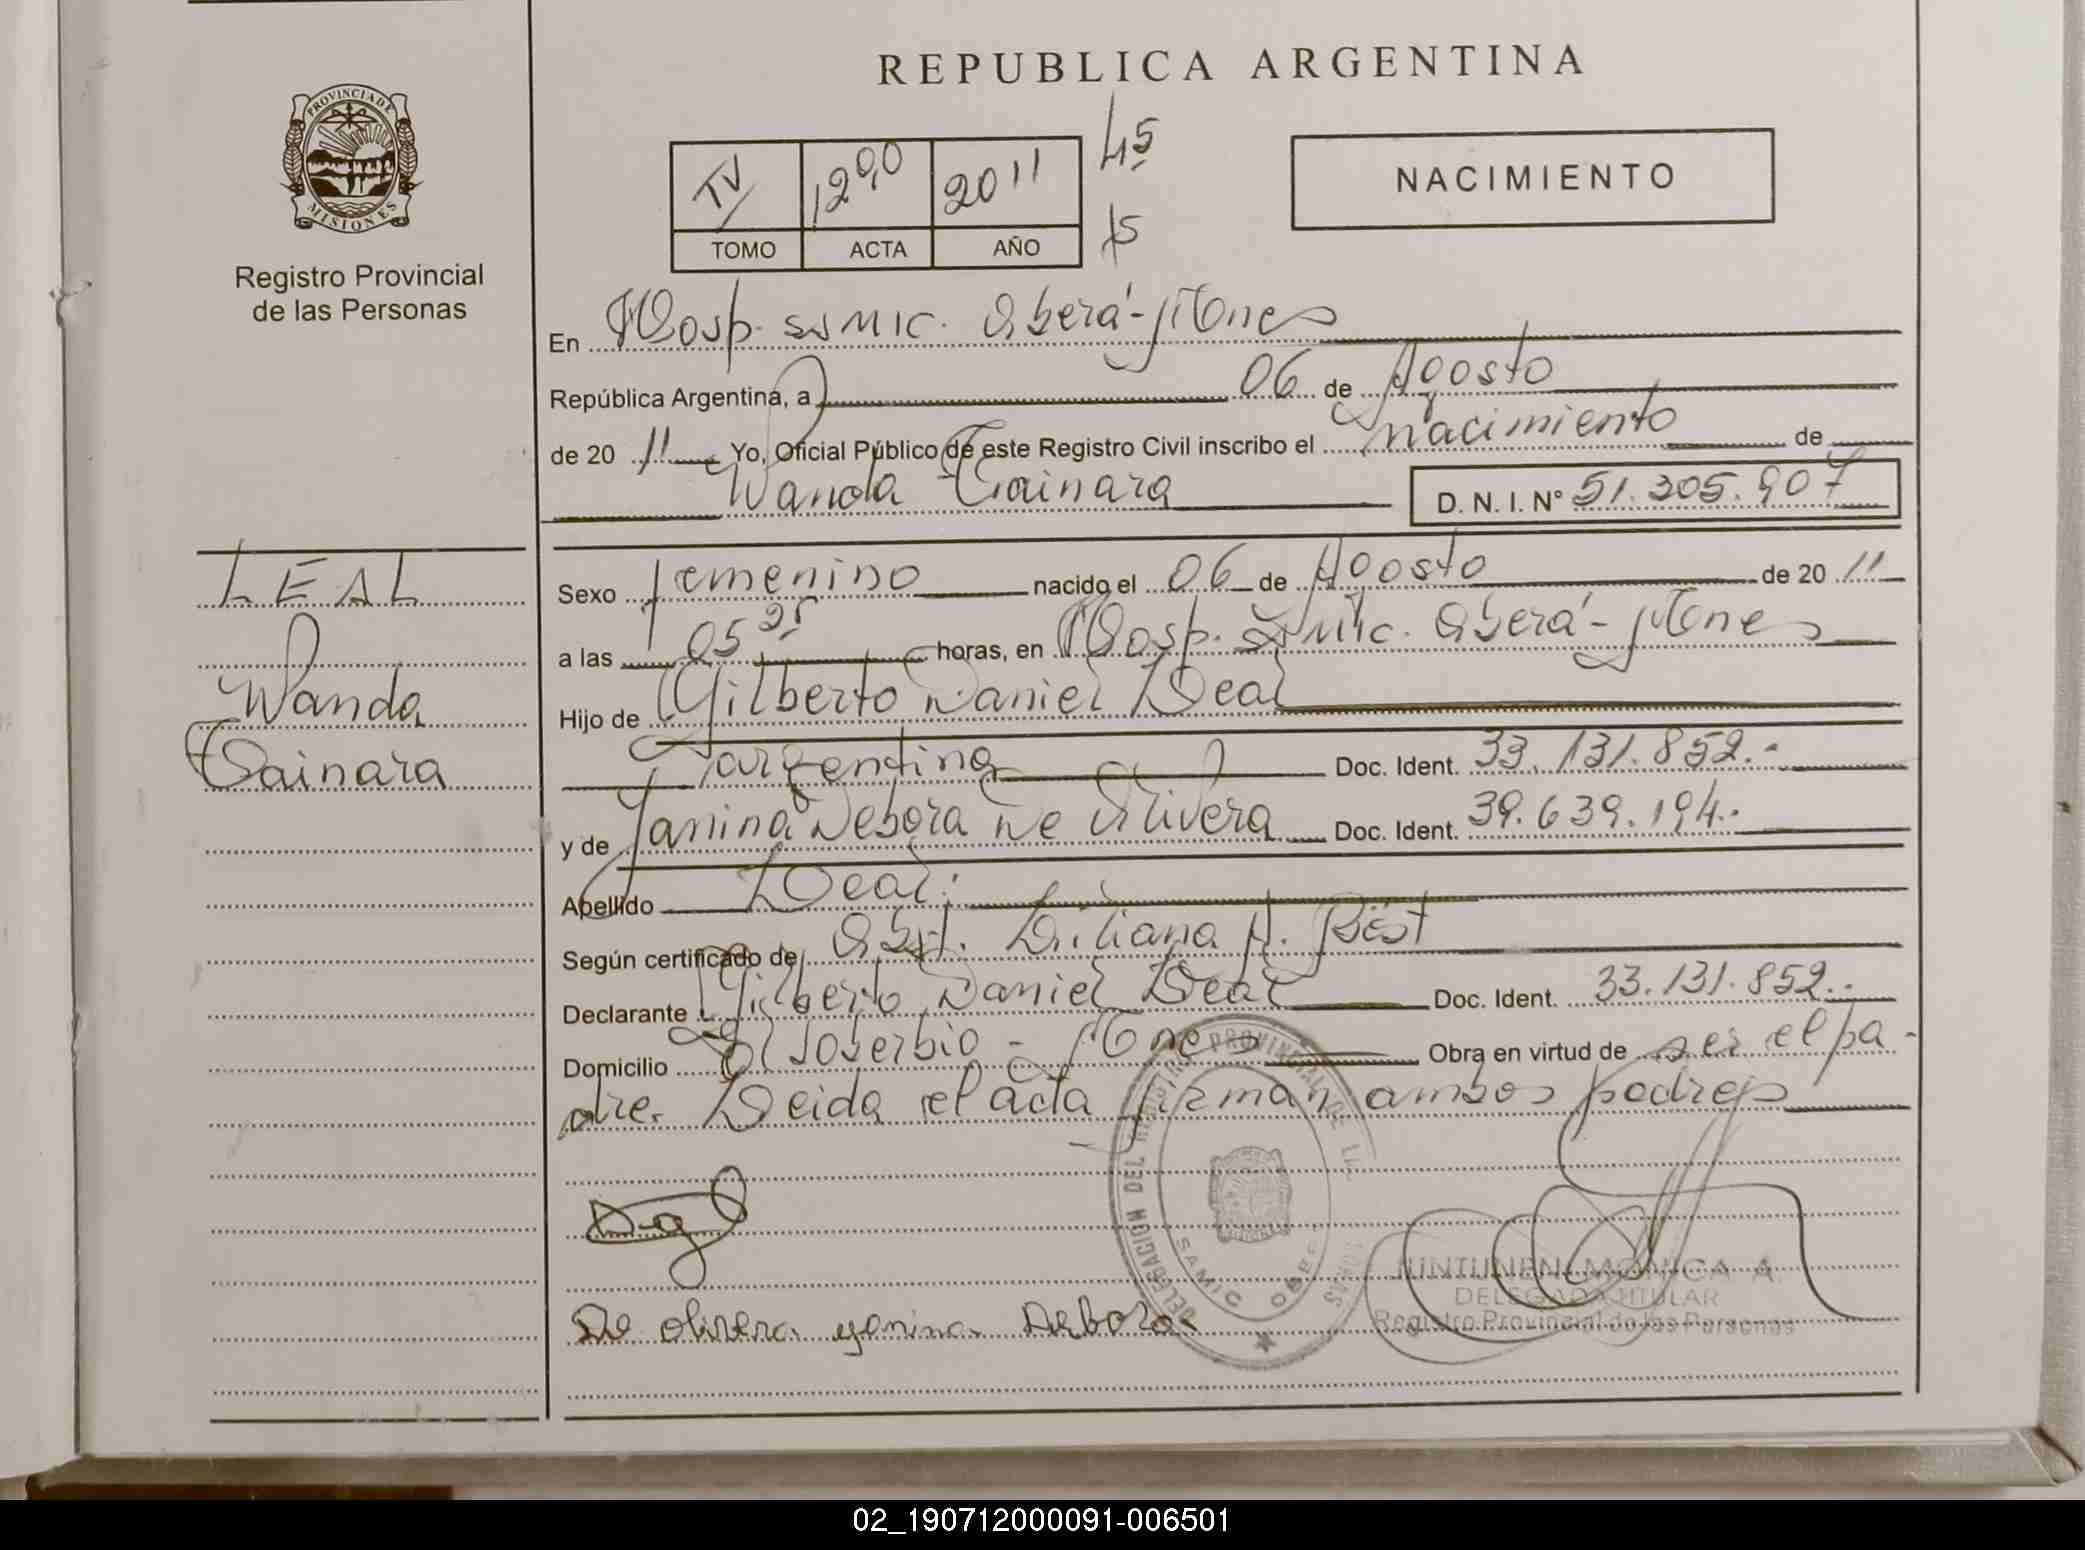 REPUBLICA ARGENTINA
PROVINCIA DE
MISIONES
Registro Provincial
de las Personas
IV 1290 2011
TOMO ACTA AÑO
45
15
NACIMIENTO
En Hosp. SAMIC. Oberá - Mnes
República Argentina, a 06 de Agosto
de 20 11 Yo, Oficial Público de este Registro Civil inscribo el nacimiento de
Wanda Tainara D. N. I. N° 51.305.907
LEAL
Wanda
Tainara
Sexo femenino nacido el 06 de Agosto de 20 11
a las 05 25 horas, en Hosp. SAMIC. Oberá - Mnes
Hijo de Gilberto Daniel Leal
argentina Doc. Ident. 33.131.852.-
y de Yanina Debora De Olivera Doc. Ident. 39.639.194.-
Apellido Leal.
Según certificado de Obst. Liliana A. Best
Declarante Gilberto Daniel Leal Doc. Ident. 33.131.852.-
Domicilio El Soberbio - Mnes Obra en virtud de ser el pa-
dre. Leida el acta firman ambos padres
DELEGACION DEL REGISTRO PROVINCIAL DE LAS
SAMIC OBE
JUNTUNEN MONICA A
DELEGADA TITULAR
Registro Provincial de las Personas
De olivera yanina Debora
02_190712000091-006501